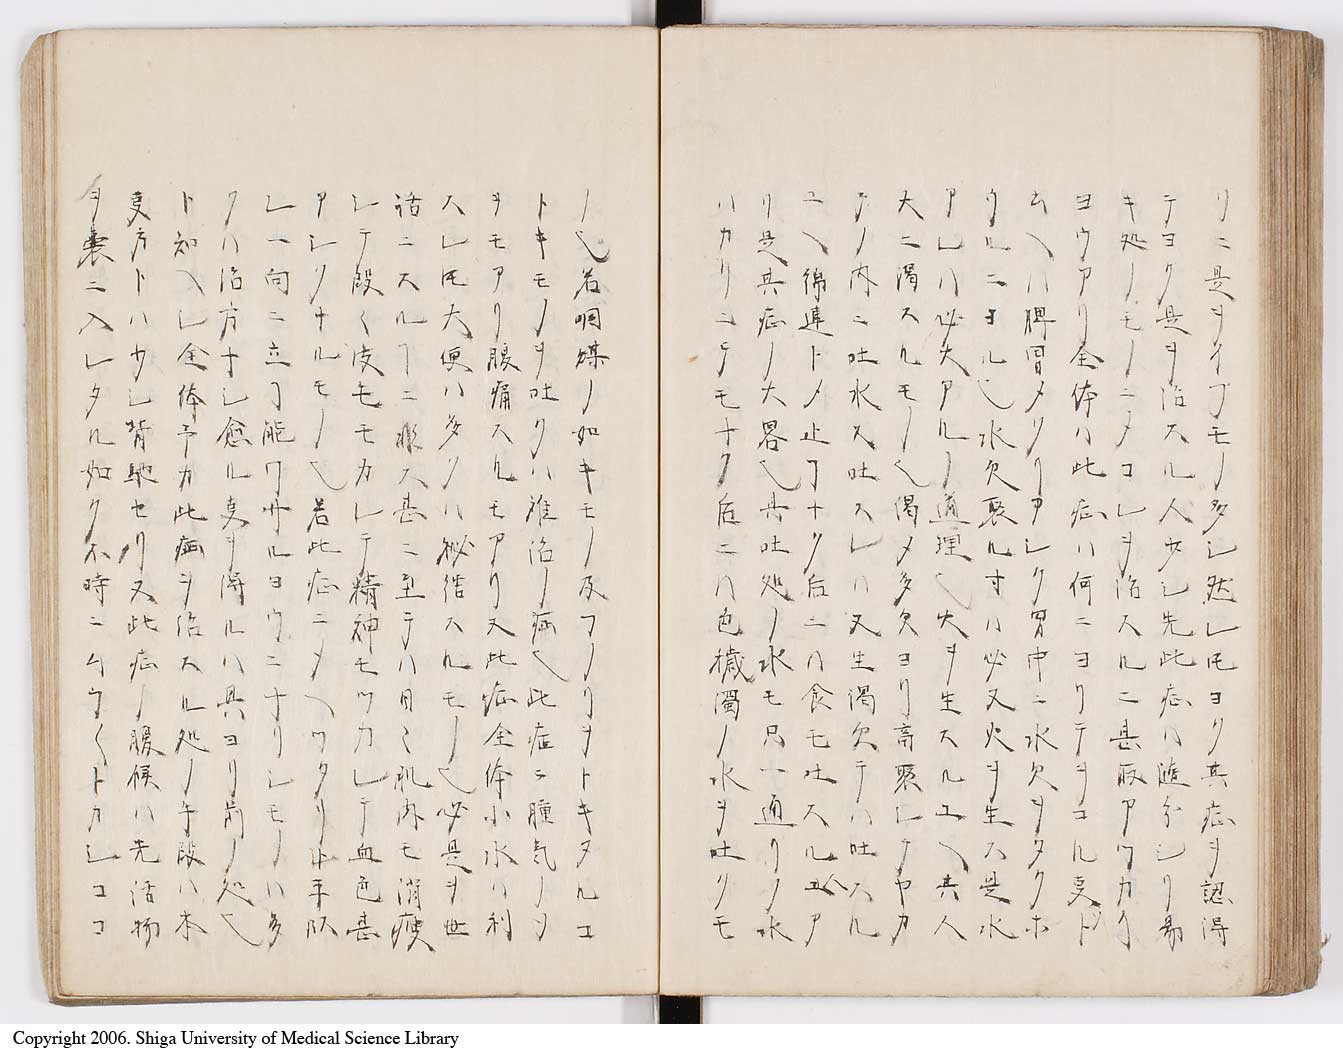 リニ是ヲイフモノ多シ然レ𪜈ヨク其症ヲ認得
テヨク是ヲ治スル人少シ先此症ハ随分シリ易
キ処ノモノニメコレヲ治スルニ甚取アツカイ
ヨウアリ全体ハ此症ハ何ニヨリテヲコル叓ト
云ヘハ脾胃メクリアシク胃中ニ水飲ヲタクホ
ウルニヨル也水欠聚ル寸ハ必又火ヲ生ス是水
アレハ必火アルノ道理也火ヲ生スルユヘ其人
大ニ渇スルモノ也渇メ多欠ヨリ高聚シテヤカ
テノ内ニ吐水ス吐スレハ又生渇欠テハ吐スル
ユヘ綿連トメ止ヿナク后ニハ食モ吐スルユア
リ是其症ノ大畧也其吐処ノ水モ只一通リノ水
ハカリニテモナク后ニハ色穢濁ノ水ヲ吐クモ
ノ也若咽煤ノ如キモノ及フノリヲトキタルコ
トキモノヲ吐クハ難治ノ症也此症ニ腫気ノツ
ヲモアリ腹痛スルモアリ又此症全体小水ハ利
スレ𪜈大便ハ多クハ秘結スルモノ也必是ヲ世
話ニスルヿニ非ス甚ニ至テハ日〻肌肉モ消痩
シテ段〻皮毛モカレテ精神モツカレテ血色甚
アシクナルモノ也若此症ニメヘワタリ卆平臥
シ一向ニ立ヿ能ワサルヨウニナリシモノハ多
クハ治方ナシ愈ル叓ヲ得ルハ具ヨリ前ノ処也
ト知ヘシ全体予カ此症ヲ治スル処ノ手段ハ本
叓方トハ少シ背馳セリ又此症ノ腹候ハ先活物
ヲ嚢ニ入レタル如ク不時ニムク〱トカシココ